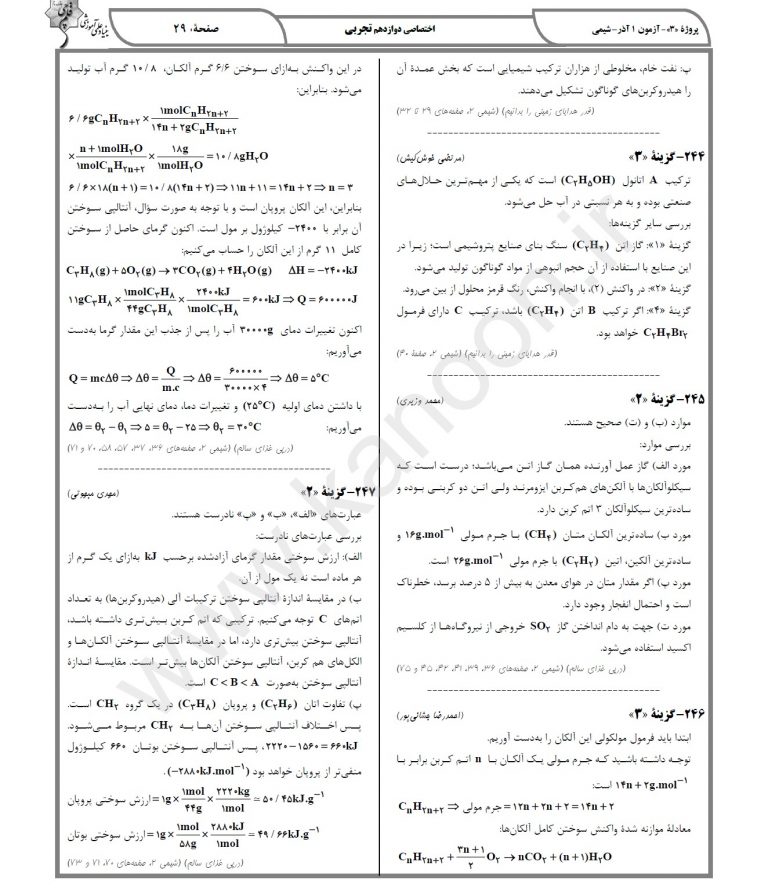 پروژهٔ «۳»- آزمون ۱ آذر- شیمی
اختصاصی دوازدهم تجربی
صفحهٔ: ۲۹
بنیاد علمی آموزشی
قلم‌چی
پ: نفت خام، مخلوطی از هزاران ترکیب شیمیایی است که بخش عمدهٔ آن
را هیدروکربن‌های گوناگون تشکیل می‌دهند.
(قدر هدایای زمینی را بدانیم) (شیمی ۲، صفحه‌های ۲۹ تا ۳۲)
۲۴۴- گزینهٔ «۳»
(مرتضی خوش‌کیش)
ترکیب A اتانول (C۲H۵OH) است که یکی از مهم‌ترین حلال‌های
صنعتی بوده و به هر نسبتی در آب حل می‌شود.
بررسی سایر گزینه‌ها:
گزینهٔ «۱»: گاز اتن (C۲H۴) سنگ بنای صنایع پتروشیمی است؛ زیرا در
این صنایع با استفاده از آن حجم انبوهی از مواد گوناگون تولید می‌شود.
گزینهٔ «۲»: در واکنش (۲)، با انجام واکنش، رنگ قرمز محلول از بین می‌رود.
گزینهٔ «۴»: اگر ترکیب B اتن (C۲H۴) باشد، ترکیب C دارای فرمول
C۲H۴Br۲ خواهد بود.
(قدر هدایای زمینی را بدانیم) (شیمی ۲، صفحهٔ ۴۰)
۲۴۵- گزینهٔ «۲»
(محمد وزیری)
موارد (ب) و (ت) صحیح هستند.
بررسی موارد:
مورد الف) گاز عمل آورنده همان گاز اتن می‌باشد؛ درست است که
سیکلوآلکان‌ها با آلکن‌های هم‌کربن ایزومرند ولی اتن دو کربنی بوده و
ساده‌ترین سیکلوآلکان ۳ اتم کربن دارد.
مورد ب) ساده‌ترین آلکان متان (CH۴) با جرم مولی ۱۶g.mol⁻¹ و
ساده‌ترین آلکین، اتین (C۲H۲) با جرم مولی ۲۶g.mol⁻¹ است.
مورد پ) اگر مقدار متان در هوای معدن به بیش از ۵ درصد برسد، خطرناک
است و احتمال انفجار وجود دارد.
مورد ت) جهت به دام انداختن گاز SO۲ خروجی از نیروگاه‌ها از کلسیم
اکسید استفاده می‌شود.
(در پی غذای سالم) (شیمی ۲، صفحه‌های ۳۶، ۳۹، ۴۱، ۴۲، ۴۵ و ۷۵)
۲۴۶- گزینهٔ «۳»
(احمدرضا جشانی‌پور)
ابتدا باید فرمول مولکولی این آلکان را به‌دست آوریم.
توجه داشته باشید که جرم مولی یک آلکان با n اتم کربن برابر با
۱۴n + ۲g.mol⁻¹ است:
CnH۲n+۲ ⇒ جرم مولی = ۱۲n + ۲n + ۲ = ۱۴n + ۲
معادلهٔ موازنه شدهٔ واکنش سوختن کامل آلکان‌ها:
CnH۲n+۲ + (۳n+۱)/۲ O۲ → nCO۲ + (n+۱)H۲O
در این واکنش به‌ازای سوختن ۶/۶ گرم آلکان، ۱۰/۸ گرم آب تولید
می‌شود. بنابراین:
۶/۶gCnH۲n+۲ × ۱molCnH۲n+۲ / ۱۴n+۲gCnH۲n+۲
× n+۱molH۲O / ۱molCnH۲n+۲ × ۱۸g / ۱molH۲O = ۱۰/۸gH۲O
۶/۶×۱۸(n+۱) = ۱۰/۸(۱۴n+۲) ⇒ ۱۱n+۱۱ = ۱۴n+۲ ⇒ n = ۳
بنابراین، این آلکان پروپان است و با توجه به صورت سؤال، آنتالپی سوختن
آن برابر با ۲۴۰۰− کیلوژول بر مول است. اکنون گرمای حاصل از سوختن
کامل ۱۱ گرم از این آلکان را حساب می‌کنیم:
C۳H۸(g) + ۵O۲(g) → ۳CO۲(g) + ۴H۲O(g) ΔH = −۲۴۰۰kJ
۱۱gC۳H۸ × ۱molC۳H۸ / ۴۴gC۳H۸ × ۲۴۰۰kJ / ۱molC۳H۸ = ۶۰۰kJ ⇒ Q = ۶۰۰۰۰۰J
اکنون تغییرات دمای ۳۰۰۰۰g آب را پس از جذب این مقدار گرما به‌دست
می‌آوریم:
Q = mcΔθ ⇒ Δθ = Q / m.c ⇒ Δθ = ۶۰۰۰۰۰ / ۳۰۰۰۰×۴ ⇒ Δθ = ۵°C
با داشتن دمای اولیه (۲۵°C) و تغییرات دما، دمای نهایی آب را به‌دست
می‌آوریم: Δθ = θ۲ − θ۱ ⇒ ۵ = θ۲ − ۲۵ ⇒ θ۲ = ۳۰°C
(در پی غذای سالم) (شیمی ۲، صفحه‌های ۳۶، ۳۷، ۵۷، ۵۸، ۷۰ و ۷۱)
۲۴۷- گزینهٔ «۲»
(مهدی میهوتی)
عبارت‌های «الف»، «ب» و «پ» نادرست هستند.
بررسی عبارت‌های نادرست:
الف): ارزش سوختی مقدار گرمای آزادشده برحسب kJ به‌ازای یک گرم از
هر ماده است نه یک مول از آن.
ب) در مقایسهٔ اندازهٔ آنتالپی سوختن ترکیبات آلی (هیدروکربن‌ها) به تعداد
اتم‌های C توجه می‌کنیم. ترکیبی که اتم کربن بیش‌تری داشته باشد،
آنتالپی سوختن بیش‌تری دارد، اما در مقایسهٔ آنتالپی سوختن آلکان‌ها و
الکل‌های هم کربن، آنتالپی سوختن آلکان‌ها بیش‌تر است. مقایسهٔ اندازهٔ
آنتالپی سوختن به‌صورت C < B < A است.
پ) تفاوت اتان (C۲H۶) و پروپان (C۳H۸) در یک گروه CH۲ است.
پس اختلاف آنتالپی سوختن آن‌ها به CH۲ مربوط می‌شود.
۲۲۲۰ − ۱۵۶۰ = ۶۶۰kJ، پس آنتالپی سوختن بوتان ۶۶۰ کیلوژول
منفی‌تر از پروپان خواهد بود (−۲۸۸۰kJ.mol⁻¹).
ارزش سوختی پروپان = ۱g × ۱mol / ۴۴g × ۲۲۲۰kg / ۱mol ≃ ۵۰/۴۵kJ.g⁻¹
ارزش سوختی بوتان = ۱g × ۱mol / ۵۸g × ۲۸۸۰kJ / ۱mol = ۴۹/۶۶kJ.g⁻¹
(در پی غذای سالم) (شیمی ۲، صفحه‌های ۷۰، ۷۱ و ۷۳)
www.kanoon.ir